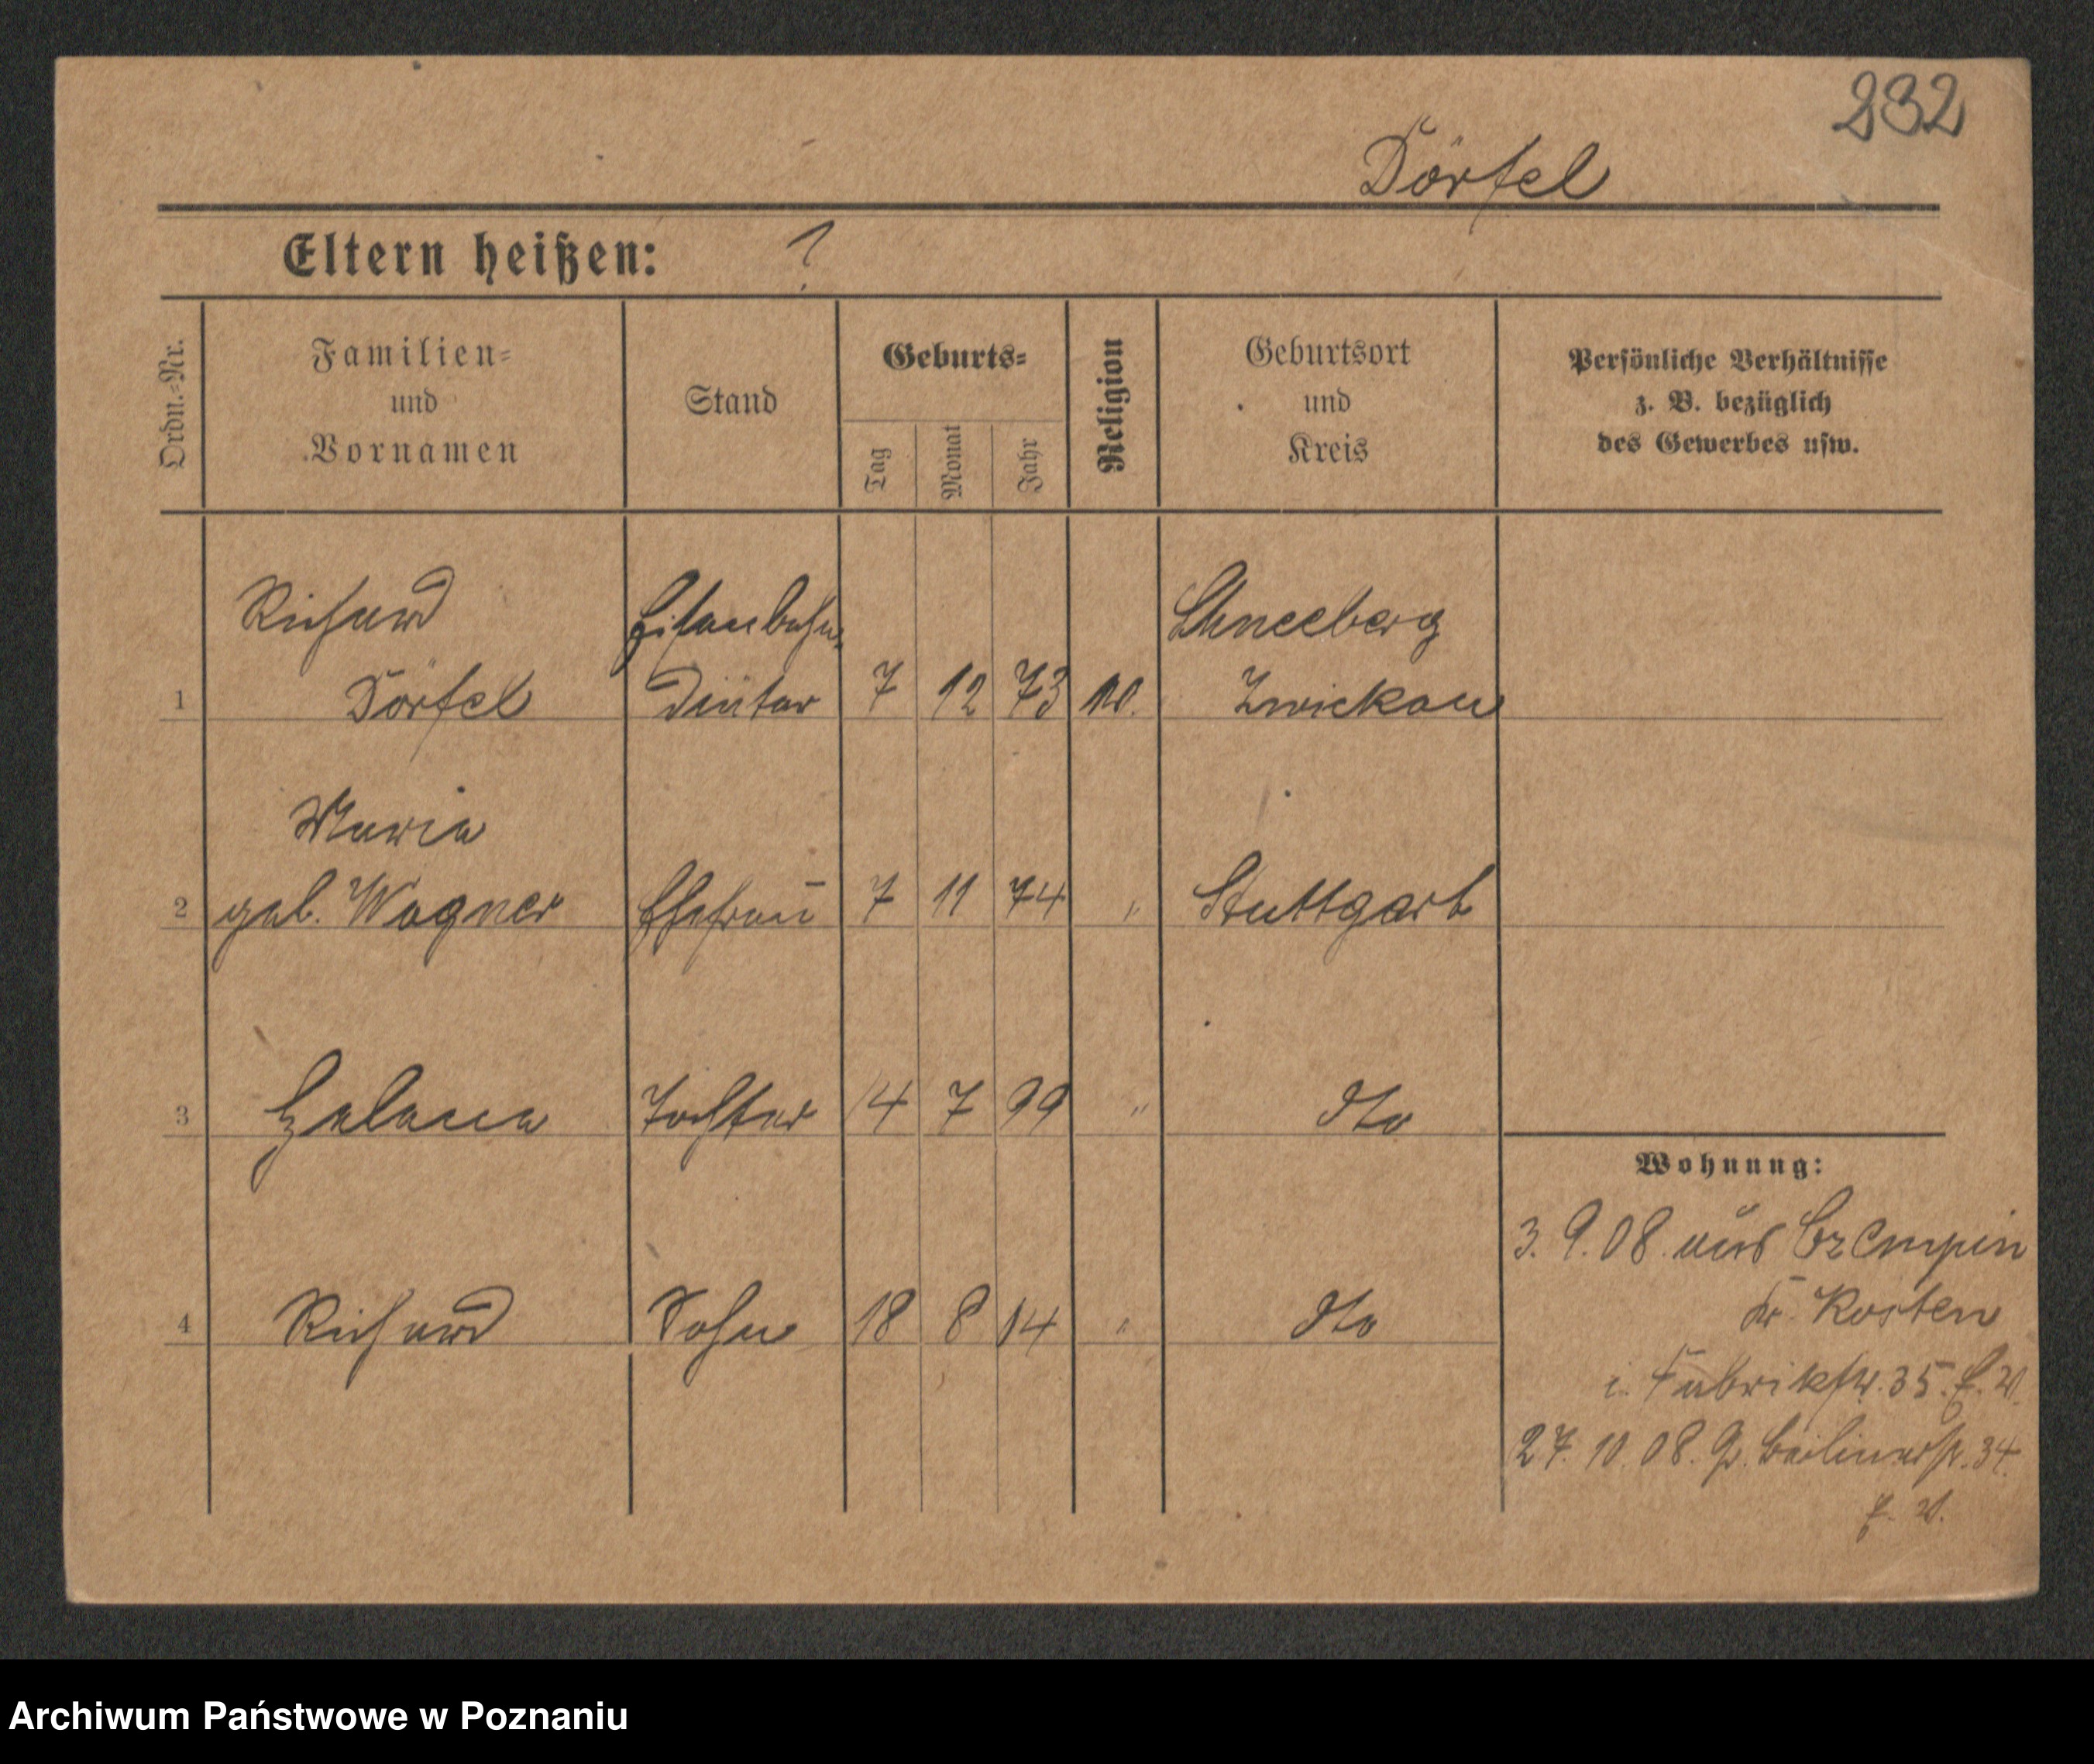 232
Dörfel
Eltern heißen: ?
Ordn.-Nr.
Familien-
und
Vornamen
Stand
Geburts-
Tag
Monat
Jahr
Religion
Geburtsort
und
Kreis
Persönliche Verhältnisse
z. B. bezüglich
des Gewerbes usw.
Richard Eisenbahn- Schneeberg
1 Dörfel 7 12 73 Zwickau
Maria
2 geb. Wagner Ehefrau 7 11 74 " Stuttgart
3 Helene Tochter 14 7 99 " dto
4 Richard Sohn 18 8 04 " dto
Wohnung:
3. 9. 08. aus Czempin
Kr. Kosten
i. Fabrikstr. 35. E. W.
27. 10. 08. Berlinerstr. 34.
E. W.
Archiwum Państwowe w Poznaniu